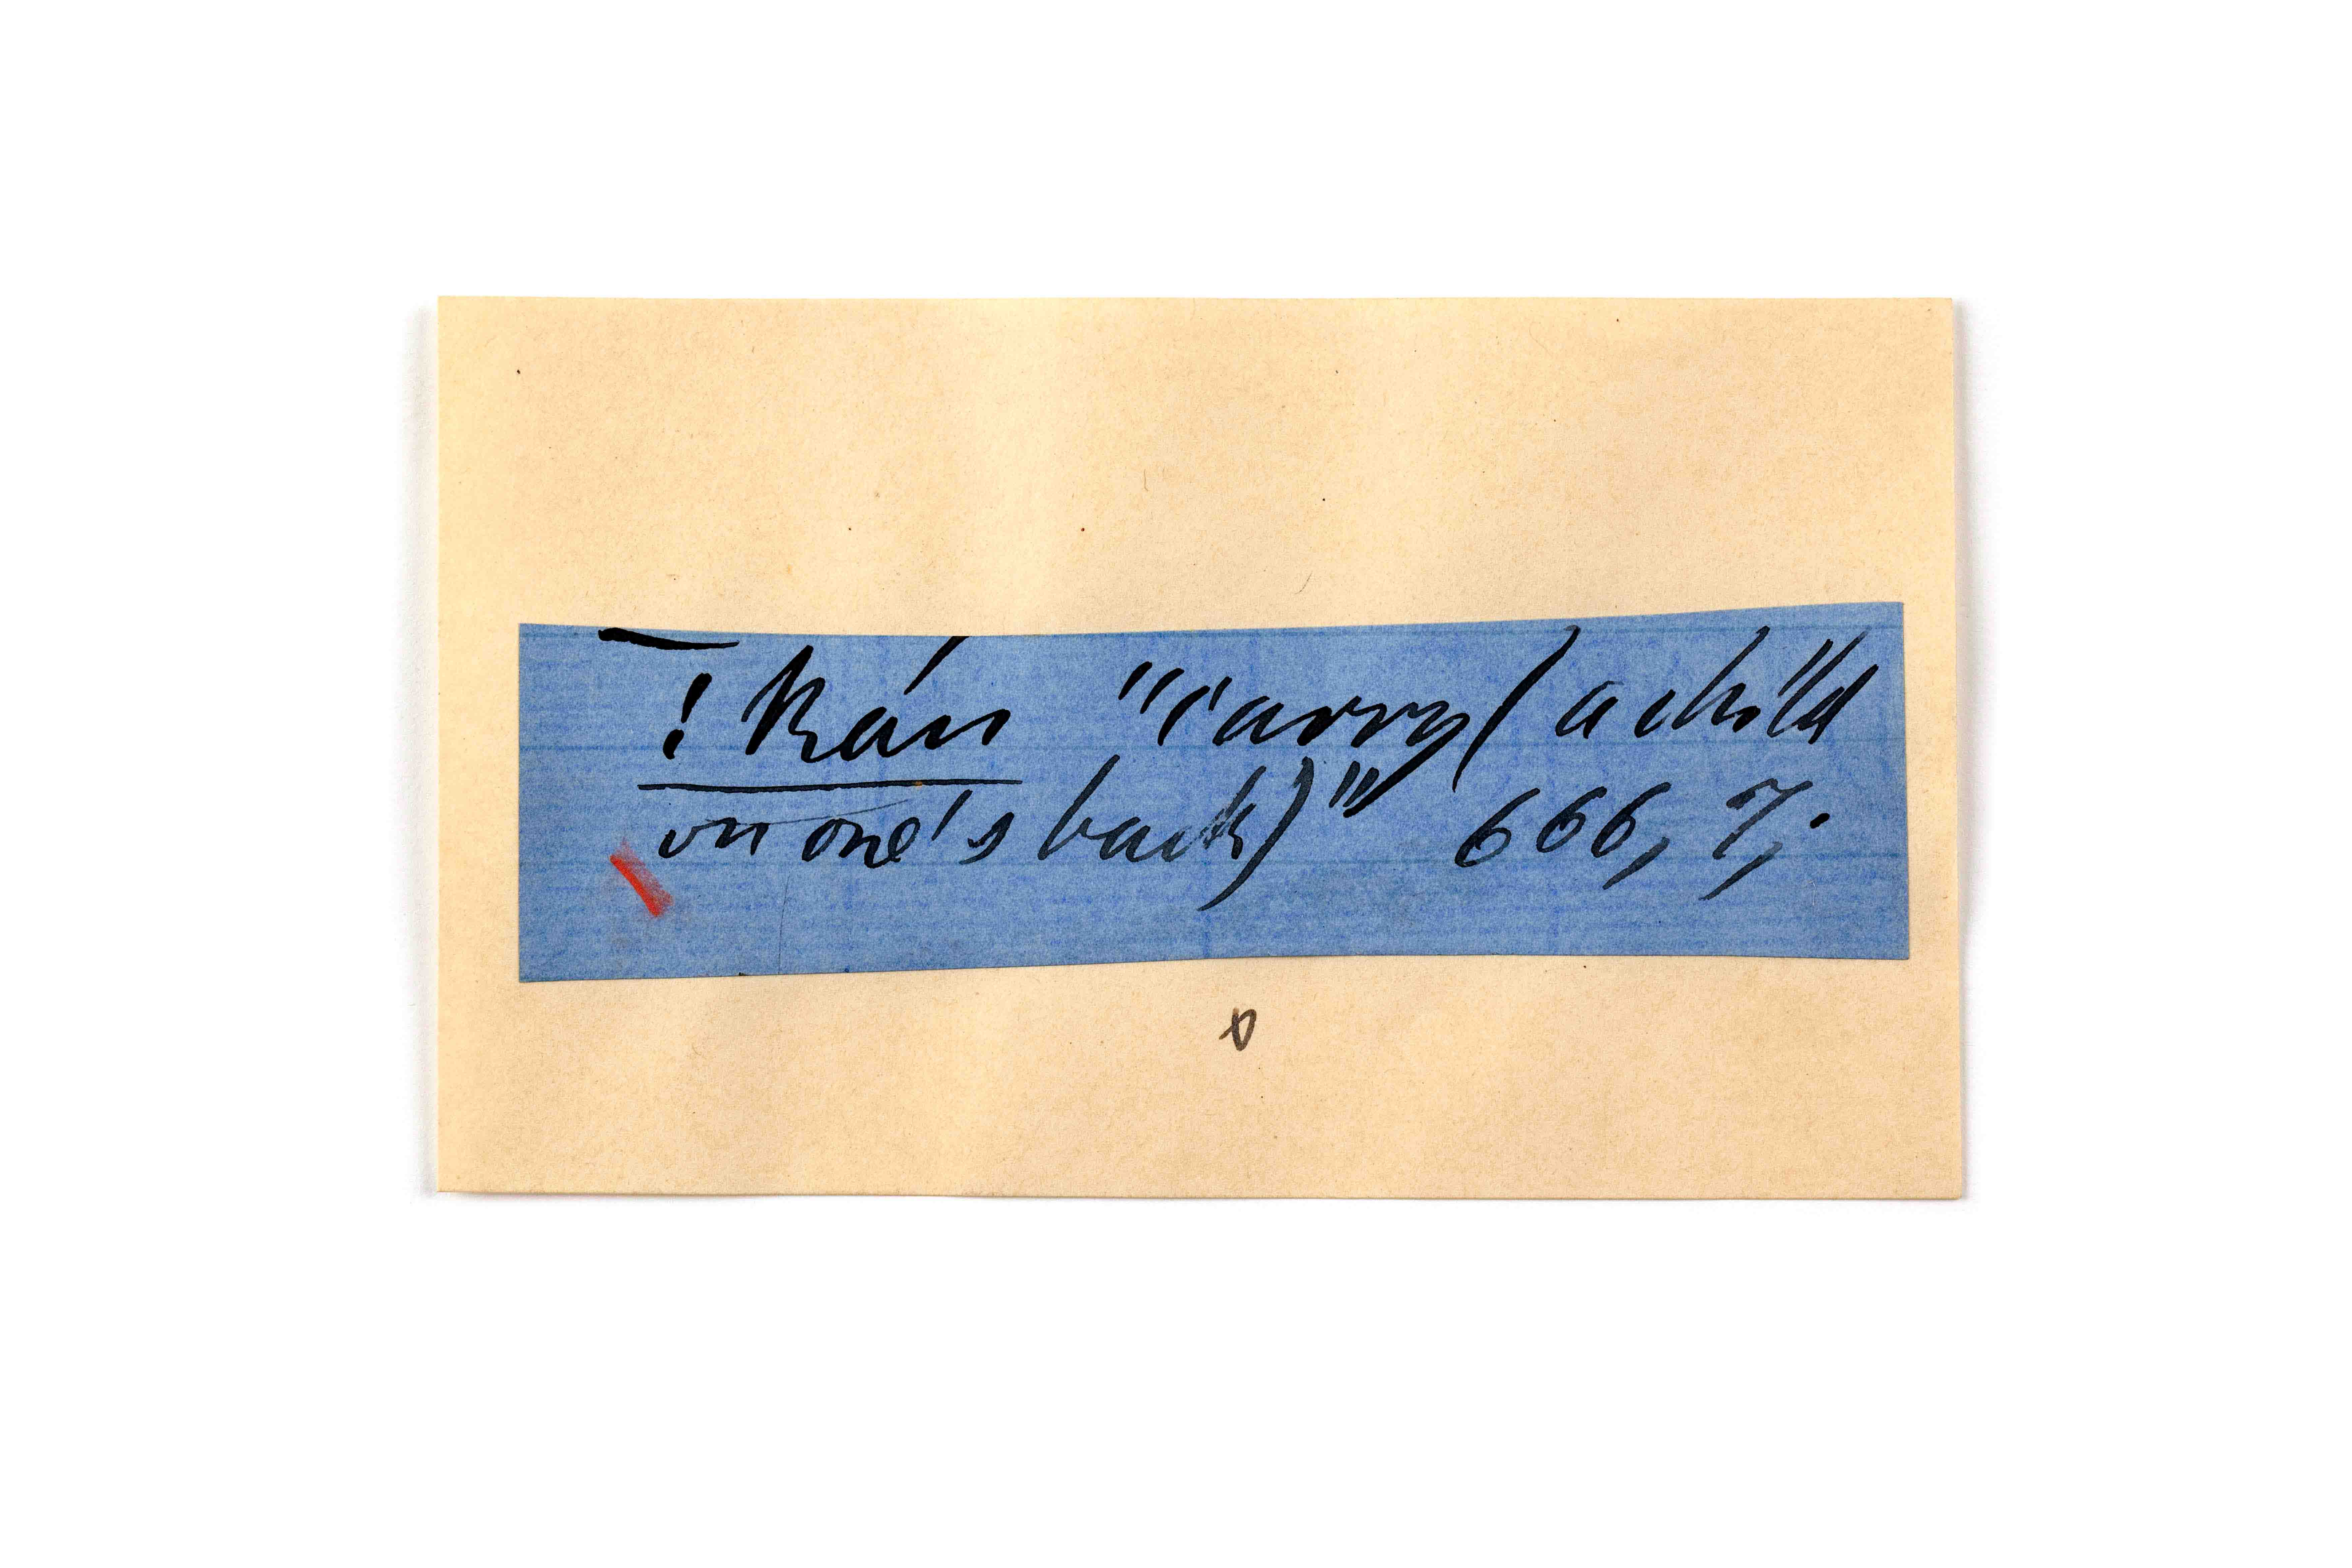 ! kán "carry (a child
on one's back)" 666, 7;